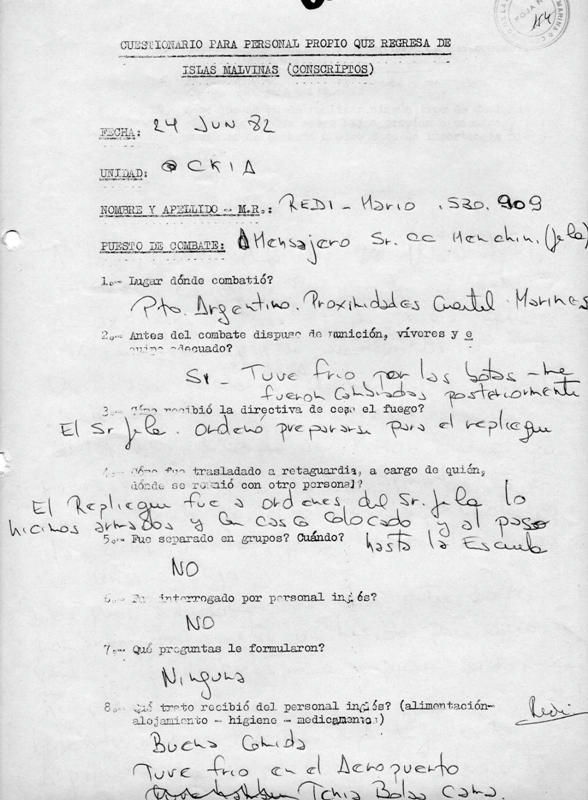 144
CUESTIONARIO PARA PERSONAL PROPIO QUE REGRESA DE
ISLAS MALVINAS (CONSCRIPTOS)
FECHA: 24 JUN 82
UNIDAD: CKIA
NOMBRE Y APELLIDO - M.R.: REDI - Mario . 530. 909
PUESTO DE COMBATE: Mensajero Sr. CC Menchini (Jefe)
1.- Lugar dónde combatió?
Pto. Argentino. Proximidades Cuartel Marines
2.- Antes del combate dispuso de munición, víveres y e
quipo adecuado?
SI - Tuve frio por las botas - me
fueron cambiadas posteriormente
3.- Cómo recibió la directiva de cese el fuego?
El Sr Jefe. ordenó prepararse para el repliegue
4.- Cómo fue trasladado a retaguardia, a cargo de quién,
dónde se reunió con otro personal?
El Repliegue fue a ordenes del Sr. Jefe lo
hicimos armados y con casco colocado y al paso
hasta la Escuela
5.- Fue separado en grupos? Cuándo?
NO
6.- Fue interrogado por personal inglés?
NO
7.- Qué preguntas le formularon?
Ninguna
8.- Qué trato recibió del personal inglés? (alimentación-
alojamiento - higiene - medicamentos)
Redi
Buena Comida
Tuve frio en el Aeropuerto
Tenia Bolsa Cama.